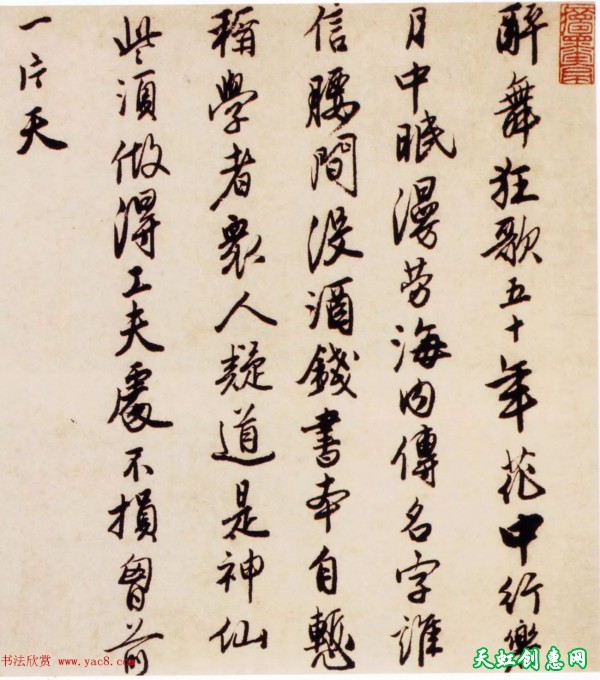 醉舞狂歌五十年花中行樂
月中眠漫劳海内傳名字誰
信腰間没酒錢書本自慙
稱學者衆人疑道是神仙
些須做得工夫處不損胷前
一片天
书法欣赏 www.yac8.com
天虹创惠网